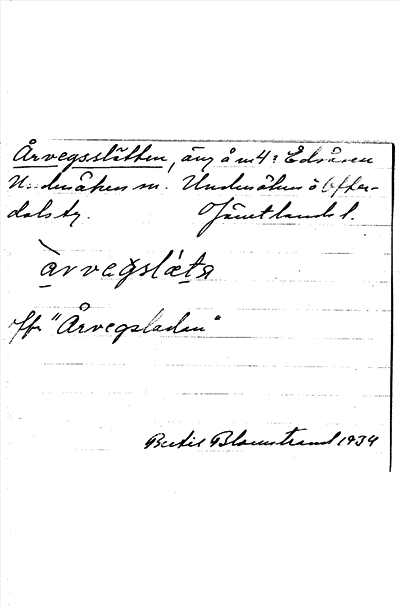 Årvegsslåtten, äng å nr 4: Edsåsen
Undersåkers sn. Undersåkers o Offer-
dals tg. Jämtlands l.
àrvegslǽtα
jfr "Årvegsladan"
Bertil Blomstrand 1934